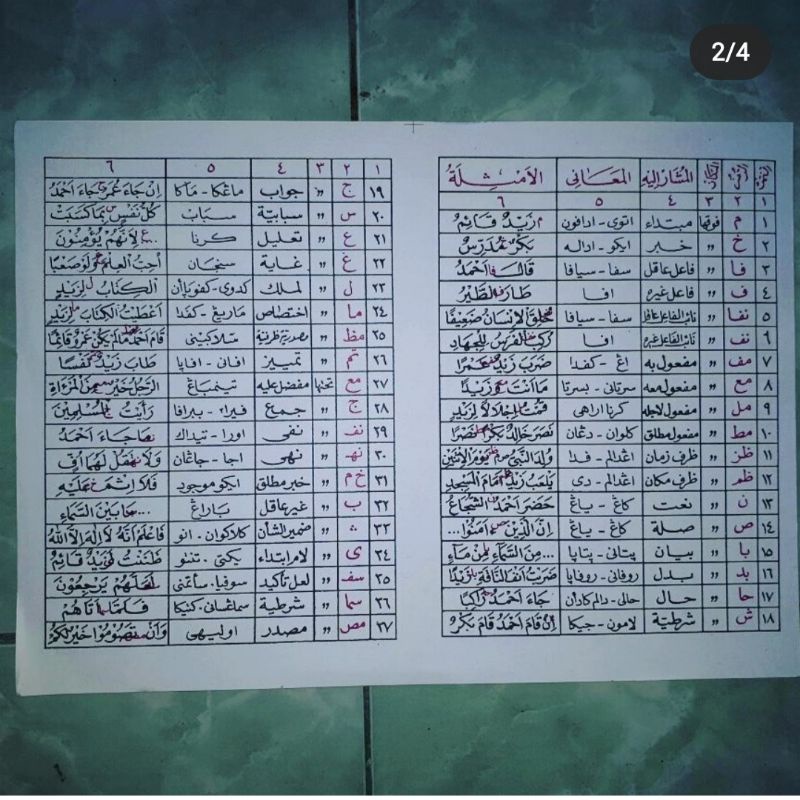 2/4
النمرة الرمز المكان المشار إليه المعانى الأمثلة
١ ٢ ٣ ٤ ٥ ٦
١ م فوقها مبتداء اتوى - ادافون زَيْدٌ قَائِمٌ
٢ خ " خبر ايكو - اداله بَكْرٌ مُدَرِّسٌ
٣ فا " فاعل عاقل سفا - سيافا قَالَ أَحْمَدُ
٤ ف " فاعل غيره افا طَارَ الطَّيْرُ
٥ نفا " نائب الفاعل عاقل سفا - سيافا خُلِقَ الْإِنْسَانُ ضَعِيفًا
٦ نف " نائب الفاعل غيره افا رُكِبَ الْفَرَسُ لِلْجِهَادِ
٧ مف " مفعول به اڠ - كفدا ضَرَبَ زَيْدٌ عَمْرًا
٨ مع " مفعول معه سرتانى - بسرتا مَا أَنْتَ وَزَيْدًا
٩ مل " مفعول لاجله كرنا اراهى قُمْتُ إِجْلَالًا لِزَيْدٍ
١٠ مط " مفعول مطلق كلوان - دڠان نَصَرَ خَالِدٌ بَكْرًا نَصْرًا
١١ ظز " ظرف زمان اڠدالم - فدا وُلِدَ النَّبِيُّ يَوْمَ الْإِثْنَيْنِ
١٢ ظم " ظرف مكان اڠدالم - دى يَلْعَبُ زَيْدٌ أَمَامَ الْمَسْجِدِ
١٣ ن " نعت كاڠ - ياڠ حَضَرَ أَحْمَدُ الشُّجَاعُ
١٤ ص " صلة كاڠ - ياڠ إِنَّ الَّذِينَ آمَنُوا...
١٥ با " بيان پتانى - پتاپا ...مِنَ السَّمَاءِ مِنْ مَاءٍ
١٦ بد " بدل روفانى - روفاپا ضَرَبْتُ زَيْدًا
١٧ حا " حال حالى - دالم كادان جَاءَ أَحْمَدُ رَاكِبًا
١٨ ش " شرطية لامون - جيكا إِنْ قَامَ أَحْمَدُ قَامَ بَكْرٌ
١ ٢ ٣ ٤ ٥ ٦
١٩ ج " جواب ماڠكا - مآكا إِنْ جَاءَ عُمَرُ جَاءَ أَحْمَدُ
٢٠ س " سببية سباب كُلُّ نَفْسٍ بِمَا كَسَبَتْ
٢١ ع " تعليل كرنا ...لِأَنَّهُمْ يُؤْمِنُونَ
٢٢ غ " غاية سنجان أُحِبُّ الْعِلْمَ وَلَوْ صَعْبًا
٢٣ ل " لملك كدوى - كفوپاأن الْكِتَابُ لِزَيْدٍ
٢٤ ما " اختصاص ماريڠ - كفدا أَعْطَيْتُ الْكِتَابَ لِزَيْدٍ
٢٥ مظ " مصدرية ظرفية قَامَ أَحْمَدُ مَا لَمْ يَكُنْ عَمْرٌو قَائِمًا
٢٦ تم " تمييز افانى - افاپا طَابَ زَيْدٌ نَفْسًا
٢٧ مع تحتها مفضل عليه تيمباڠ الرَّجُلُ خَيْرٌ مِنَ الْمَرْأَةِ
٢٨ ج " جمع فيرا - ببرافا رَأَيْتُ الْمُسْلِمِينَ
٢٩ نف " نفى اورا - تيداك مَا جَاءَ أَحْمَدُ
٣٠ نهـ " نهى اجا - جاڠان وَلَا تَقُلْ لَهُمَا أُفٍّ
٣١ خ م " خبر مطلق ايكو موجود فَلَا إِثْمَ عَلَيْهِ
٣٢ ب " غير عاقل باراڠ ...مَا بَيْنَ السَّمَاءِ
٣٣ ث " ضمير الشأن كلاكوان. انو فَاعْلَمْ أَنَّهُ لَا إِلَهَ إِلَّا اللهُ
٣٤ ى " لام ابتداء يكتى. تنتو ظَنَنْتُ لَزَيْدٌ قَائِمٌ
٣٥ سف " لعل تأكيد سوفيا. لَعَلَّهُمْ يَرْجِعُونَ
٣٦ سما " شرطية سماڠسان. كتيكا فَلَمَّا أَتَاهُمْ
٣٧ مص " مصدر اوليهى وَأَنْ تَصُومُوا خَيْرٌ لَكُمْ